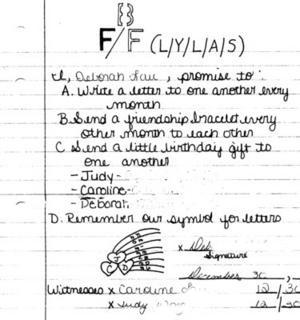 B
F/F (L/Y/L/A/S)
I, Deborah , promise to:
A. Write a letter to one another every
month
B. Send a friendship bracelet every
other month to each other
C Send a little birthday gift to
one another
- Judy-
- Caroline-
- Deborah
D. Remember our symbol for letters
J C D
x Deb
Signature
December 30,
Witnesses x Caroline 12/30
x Judy 12/30